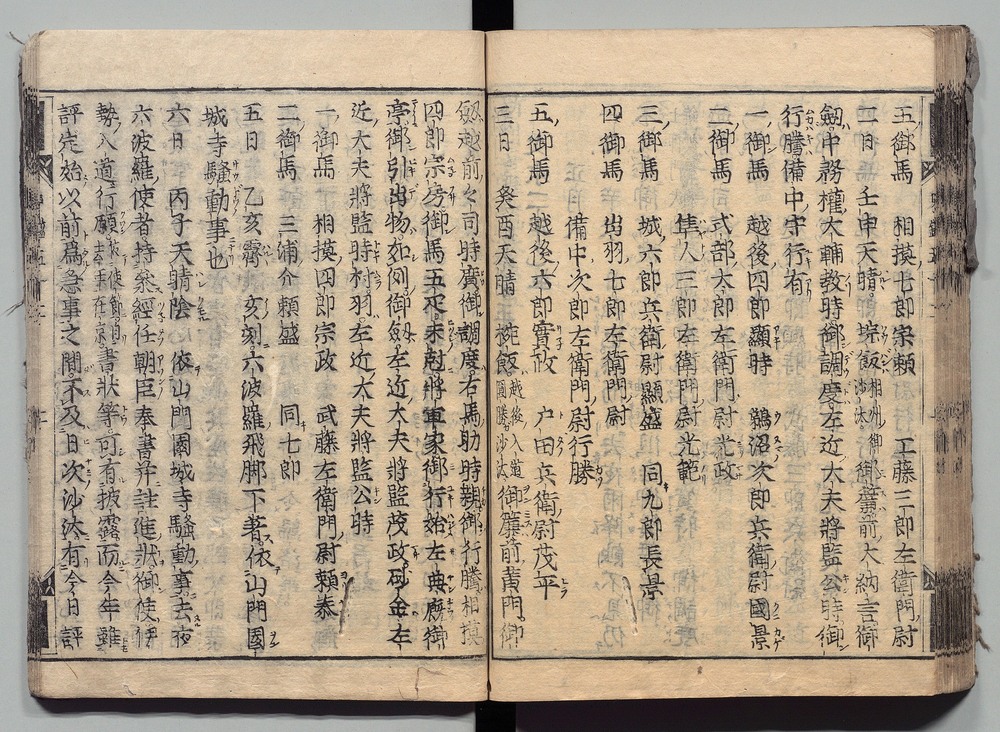 五御馬 相摸七郎宗頼 工藤三郎左衛門尉
二日 壬申天晴埦飯相州御沙汰御簾前大納言御
劔中務權大輔教時御調度左近大夫將監公時御
行騰備中守行有
一御馬 越後四郎顯時 鵜沼次郎兵衛尉國景
二御馬 式部太郎左衛門尉光政
隼人三郎左衛門尉光範
三御馬 城六郎兵衛尉顯盛 同九郎長景
四御馬 出羽七郎左衛門尉
備中次郎左衛門尉行騰
五御馬 越後六郎實政 戸田兵衛尉茂平
三日 癸酉天晴 埦飯越後入道沙汰御簾前黄門御
劔越前々司時廣御調度右馬助時親御行騰相摸
四郎宗房御馬五疋未尅將軍家御行始左典廐御
亭御引出物如例御劔左近大夫將監茂政砂金左
近大夫將監時村羽左近大夫將監公時
一御馬 相摸四郎宗政 武藤左衛門尉頼泰
二御馬 三浦介頼盛 同七郎
五日 乙亥霽亥刻六波羅飛脚下著依山門園
城寺騒動事也
六日 丙子天晴陰 依山門園城寺騒動事去夜
六波羅使者持參經任朝臣奉書并註進狀御使伊
勢入道行願書狀等可有披露而今年雖
評定始以前爲急事之間不及日次沙汰有今日評